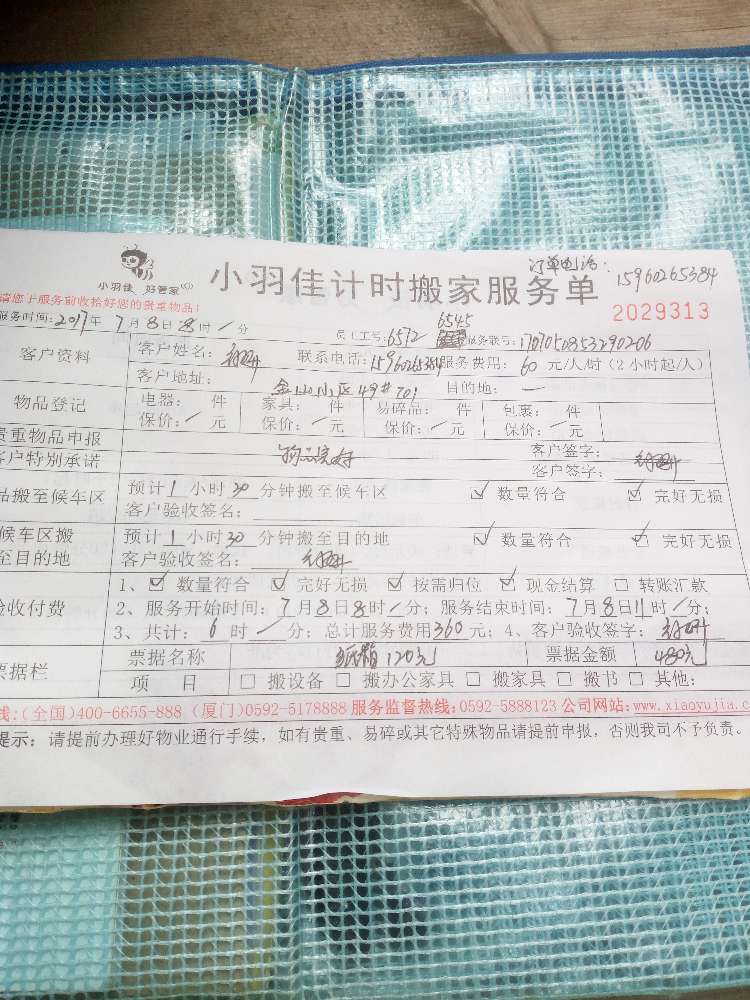 小羽佳 好管家
小羽佳计时搬家服务单
订单电话:15960265384
2029313
请您于服务前收拾好您的贵重物品!
服务时间:2017年7月8日8时/分
员工工号:6572 6545 服务联号:
客户资料 客户姓名: 联系电话:15960265384 服务费用:60元/人/时(2小时起/人)
客户地址: 小区49#701 目的地:—
物品登记 电器: 件 家具: 件 易碎品: 件 包裹: 件
保价:/元 保价:/元 保价:/元 保价:/元
贵重物品申报 客户签字:
客户特别承诺 客户签字:
品搬至候车区 预计1小时30分钟搬至候车区 ☑ 数量符合 ☑ 完好无损
客户验收签名:
候车区搬 预计1小时30分钟搬至目的地 ☑ 数量符合 ☑ 完好无损
至目的地 客户验收签名:
1、☑ 数量符合 ☑ 完好无损 ☑ 按需归位 ☑ 现金结算 □ 转账汇款
验收付费 2、服务开始时间:7月8日8时/分;服务结束时间:7月8日11时/分;
3、共计:6时/分;总计服务费用360元;4、客户验收签字:
票据栏 票据名称 纸箱120元 票据金额 480元
项 目 □ 搬设备 □ 搬办公家具 □ 搬家具 □ 搬书 □ 其他:
线:(全国)400-6655-888 (厦门)0592-5178888 服务监督热线:0592-5888123 公司网站:www.xiaoyujia.c
提示:请提前办理好物业通行手续,如有贵重、易碎或其它特殊物品请提前申报,否则我司不予负责。